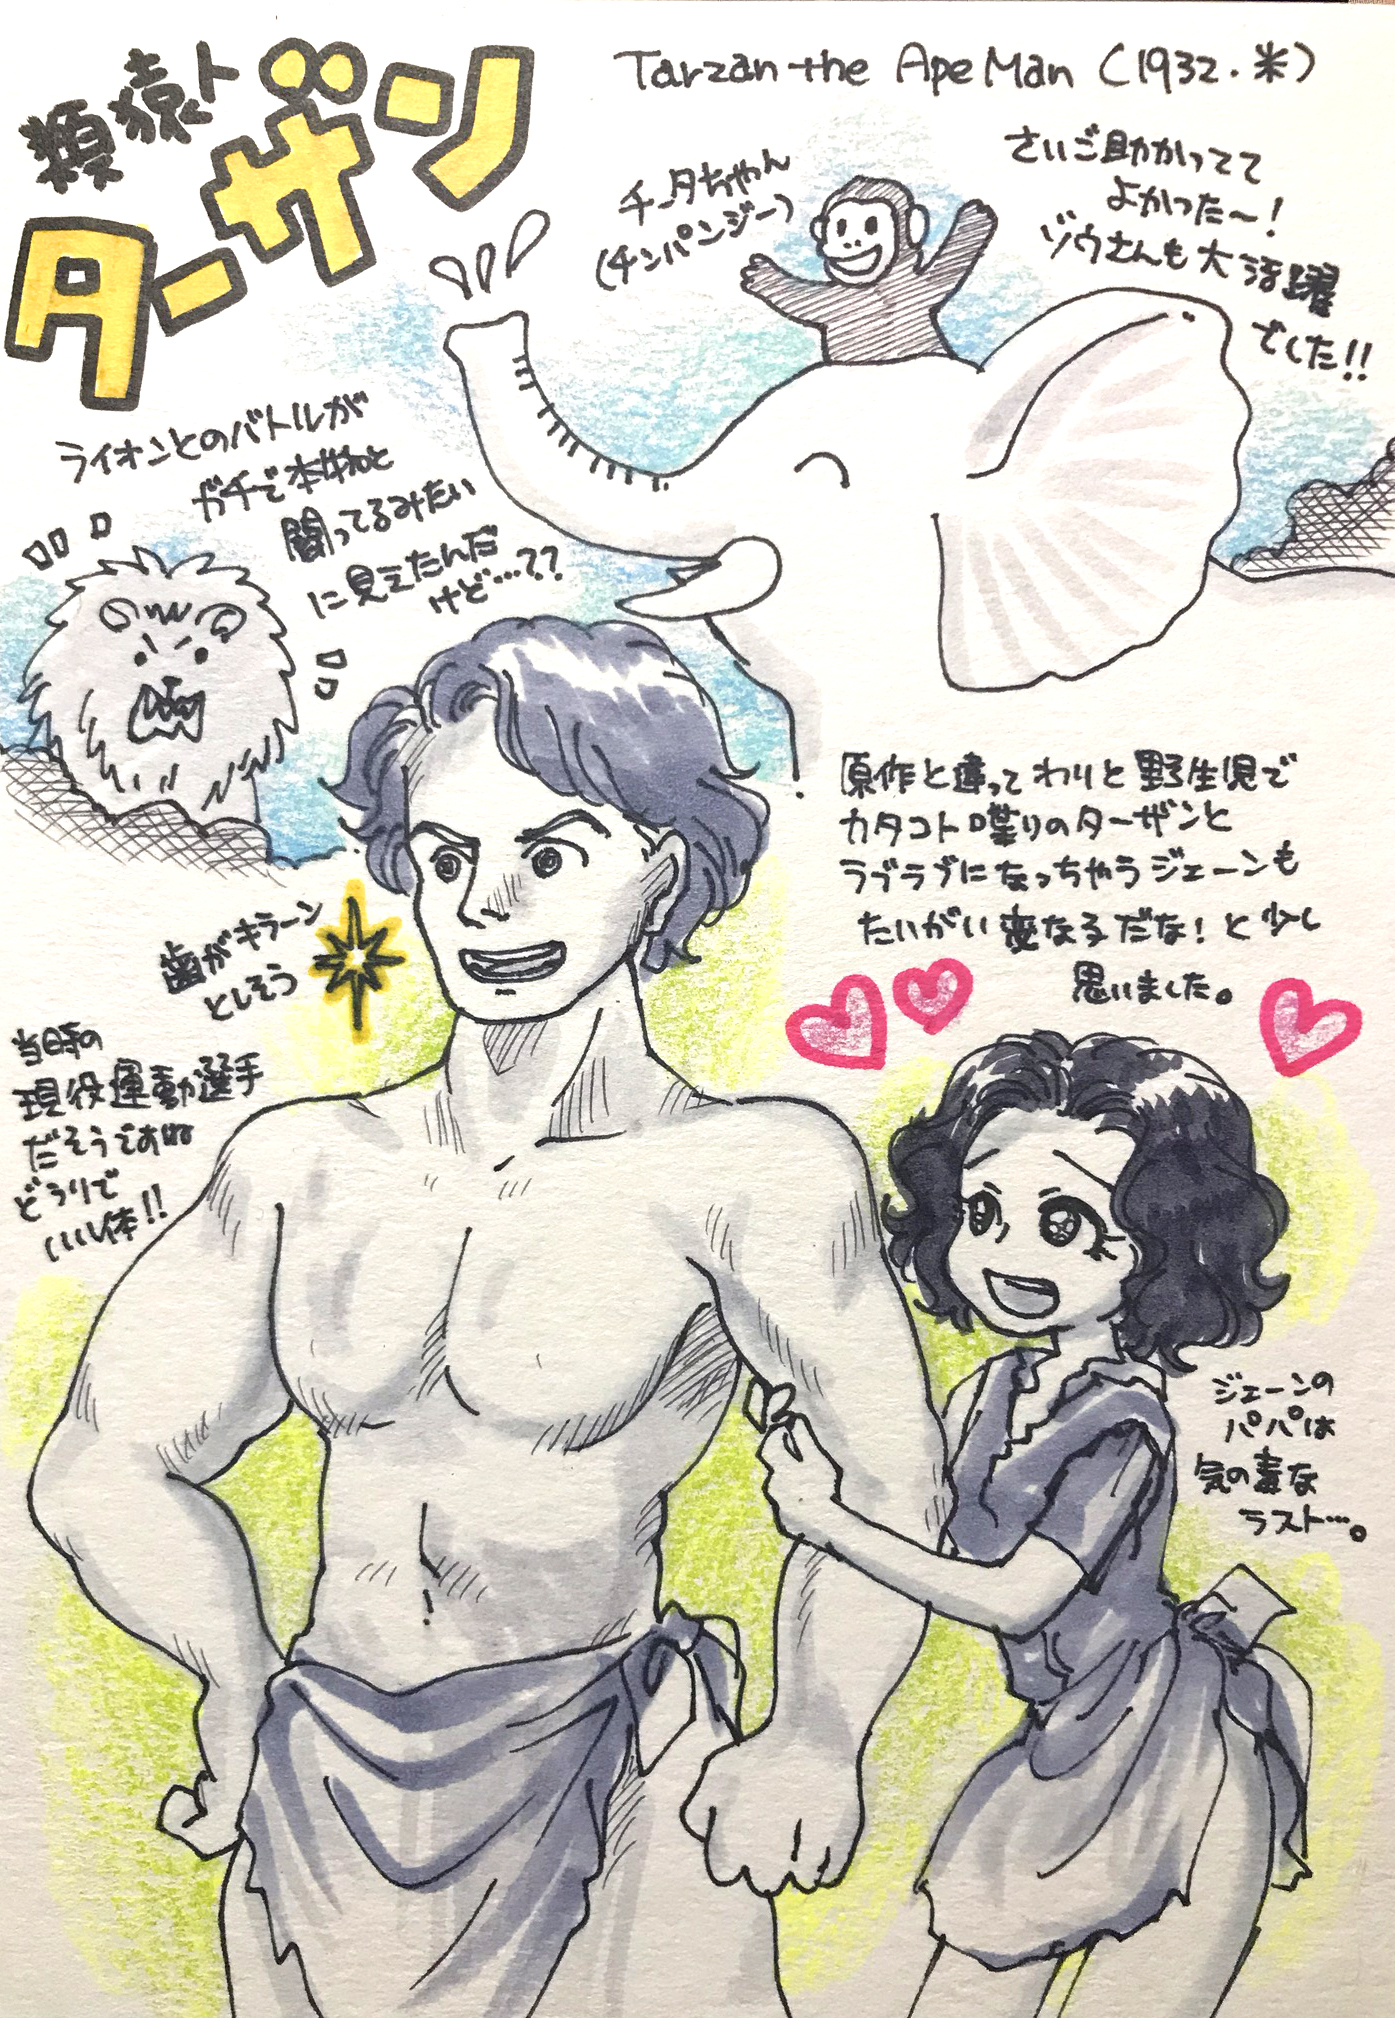 類猿人
ターザン
Tarzan the Ape Man (1932.米)
チータちゃん
(チンパンジー)
さいご助かってて
よかった〜!
ゾウさんも大活躍
でした!!
ライオンとのバトルが
ガチで本物と
闘ってるみたい
に見えたんだ
けど…??
原作と違ってわりと野生児で
カタコト喋りのターザンと
ラブラブになっちゃうジェーンも
たいがい変な子だな!と少し
思いました。
歯がキラーン
としそう
当時の
現役運動選手
だそうですね
どうりで
いい体!!
ジェーンの
パパは
気の毒な
ラスト…。